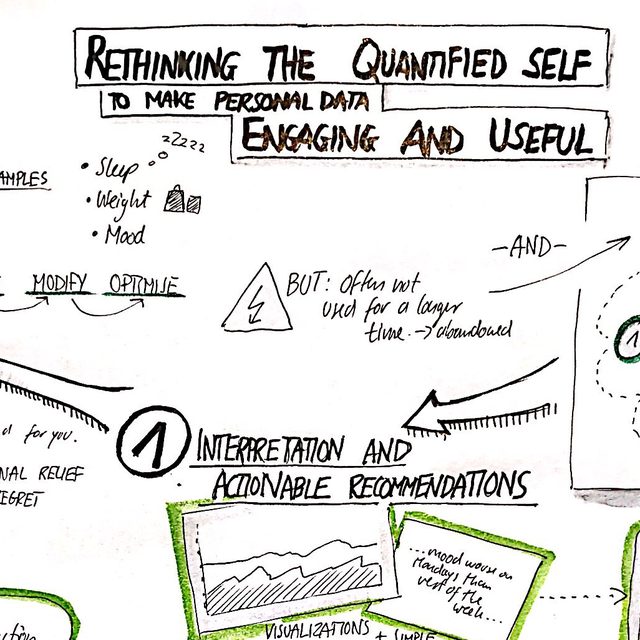 RETHINKING THE QUANTIFIED SELF
TO MAKE PERSONAL DATA
ENGAGING AND USEFUL
zZzzz
• Sleep
• Weight
• Mood
MODIFY OPTIMISE
BUT: Often not
used for a longer
time. → abandoned
-AND-
1
for you.
RELIEF
1 INTERPRETATION AND
ACTIONABLE RECOMMENDATIONS
...mood worse on
Mondays than
rest of the
week...
VISUALIZATIONS + SIMPLE